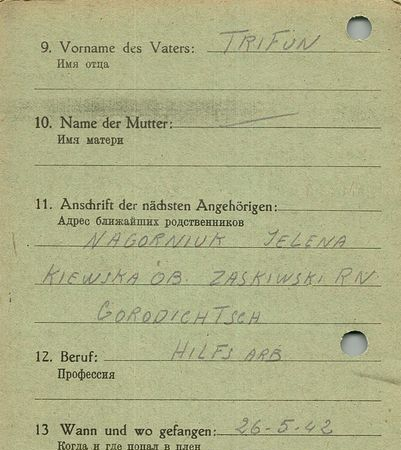 9. Vorname des Vaters: TRIFUN
Имя отца
10. Name der Mutter:
Имя матери
11. Anschrift der nächsten Angehörigen:
Адрес ближайших родственников
NAGORNIUK JELENA
KIEWSKA OB. ZASKIWSKI RN
GORODICHTSCH
12. Beruf: HILFS ARB
Профессия
13 Wann und wo gefangen: 26-5-42
Когда и где попал в плен